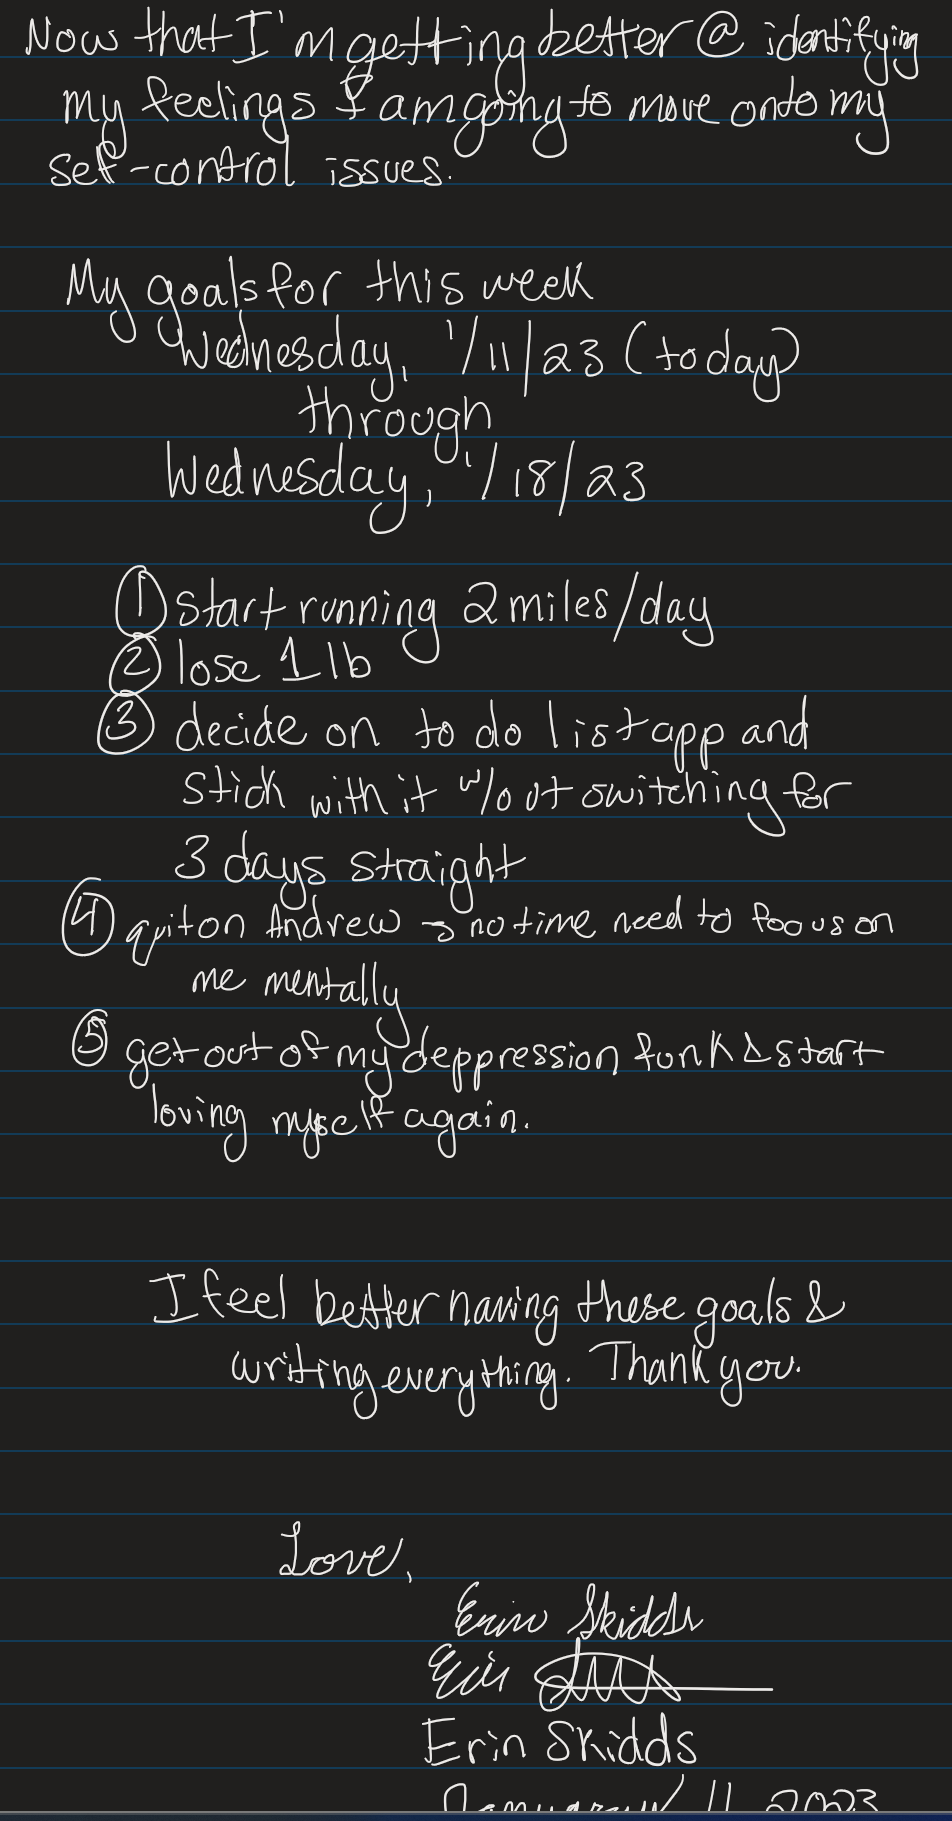 Now that I'm getting better @ identifying
my feelings I am going to move onto my
self-control issues.
My goals for this week
Wednesday, 1/11/23 (today)
through
Wednesday, 1/18/23
① start running 2 miles/day
② lose 1 lb
③ decide on to do list app and
stick with it w/out switching for
3 days straight
④ quit on Andrew → no time need to focus on
me mentally
⑤ get out of my deppression funk & start
loving myself again.
I feel better having these goals &
writing everything. Thank you.
Love,
Erin Skidds
Erin
Erin Skidds
January 11, 2023